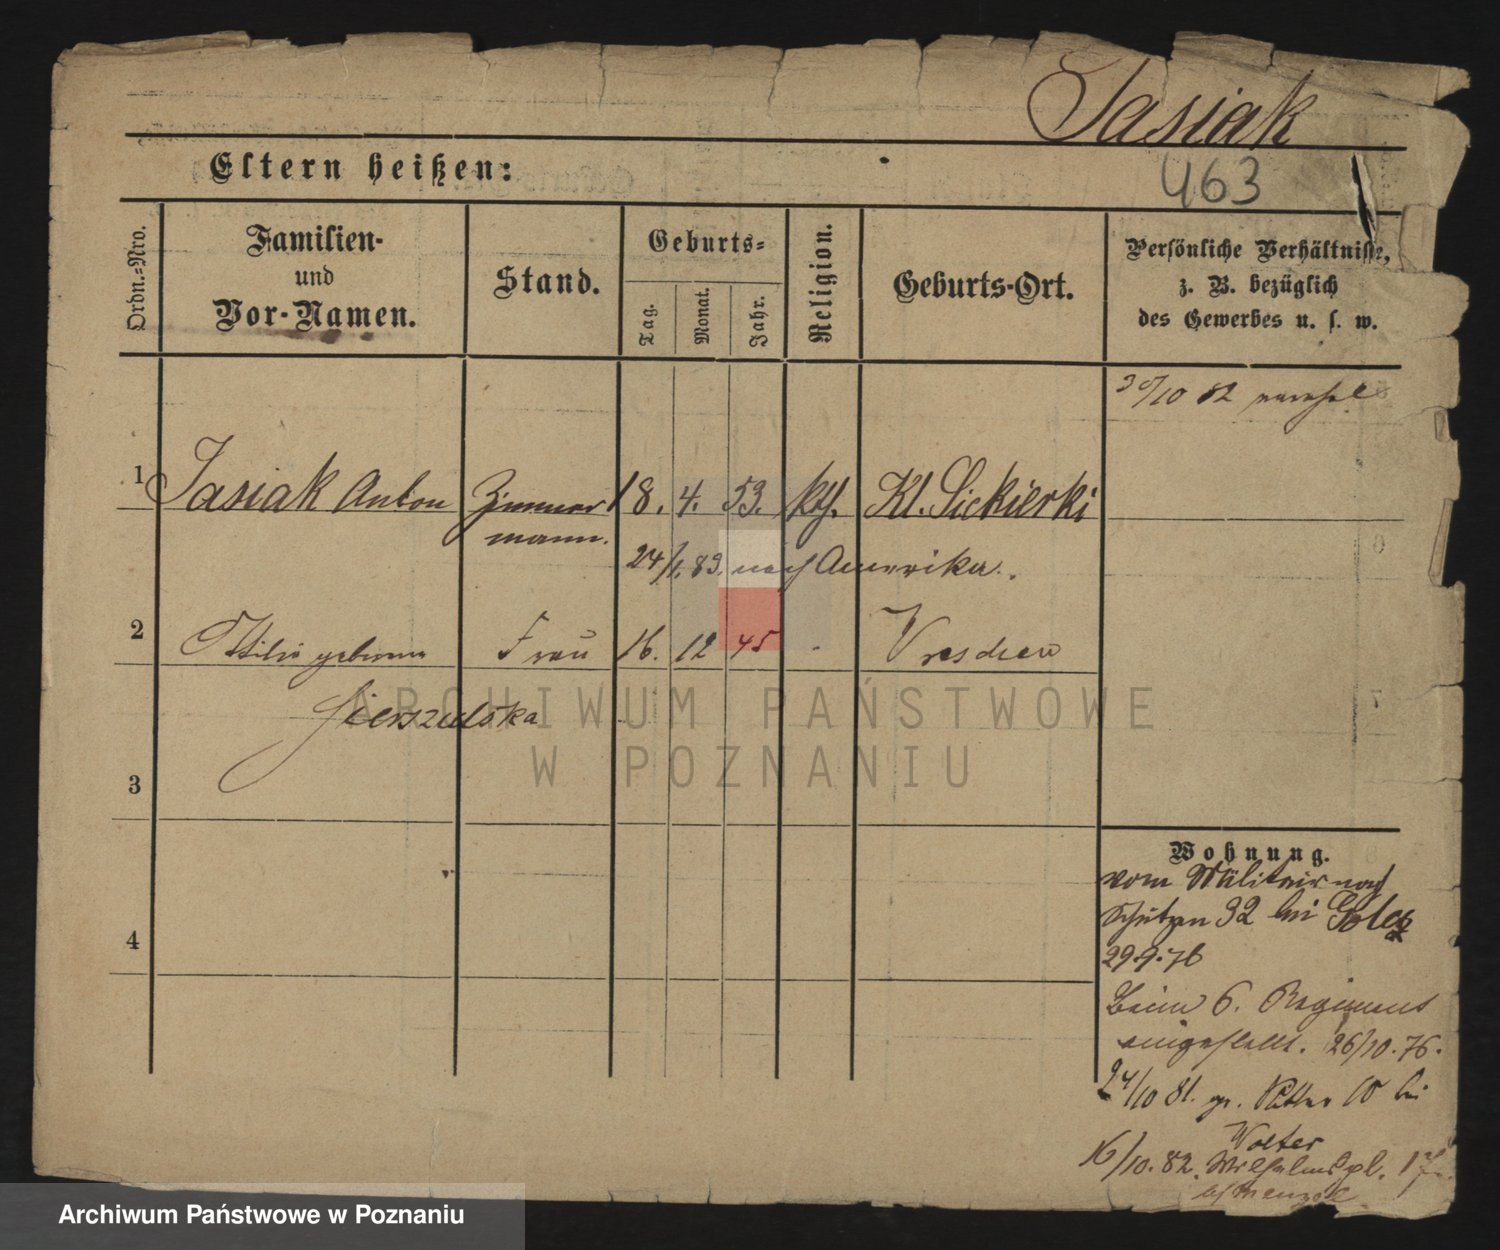 Jasiak
463
Eltern heißen:
Ordn.-Nro.
Familien-
und
Vor-Namen.
Stand.
Geburts-
Tag.
Monat.
Jahr.
Religion.
Geburts-Ort.
Persönliche Verhältnisse,
z. B. bezüglich
des Gewerbes u. s. w.
30/10 82
1 Jasiak Anton Zimmer 18. 4. 53. kth. Kl. Siekierki
mann.
24/1. 83. nach Amerika.
2 Ottilie geborene Frau 16. 12 45 Wreschen
3
4
Wohnung.
vom Militair nach
Schützen 32 bei
29.9.76
Beim 6. Regiment
eingestellt. 26/10.76.
24/10 81. gr. Ritter 10 bei
Wolter
16/10. 82. Wilhelmspl. 17
ARCHIWUM PAŃSTWOWE
W POZNANIU
Archiwum Państwowe w Poznaniu